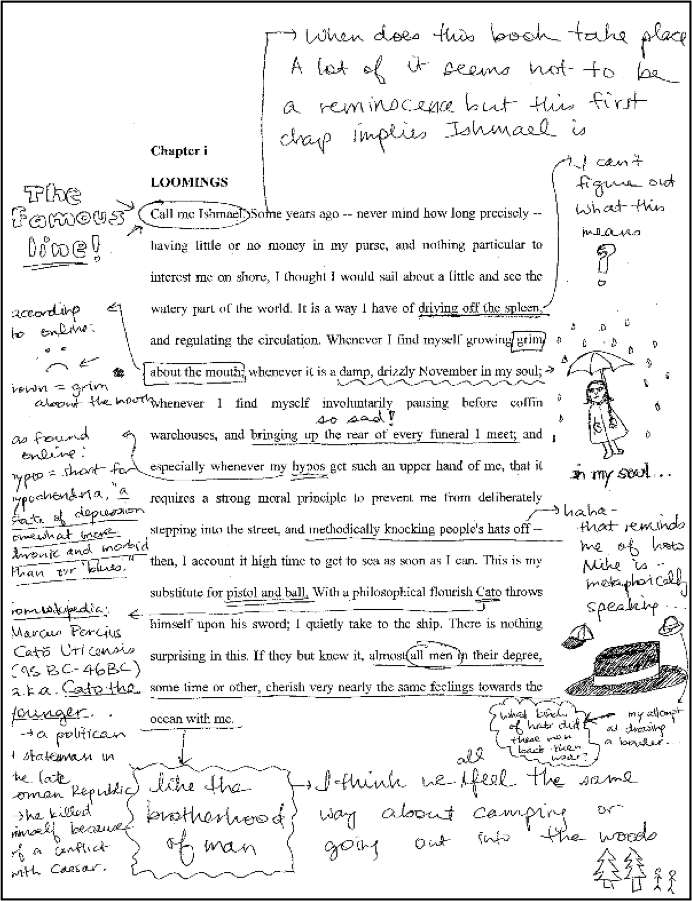 When does this book take place
A lot of it seems not to be
a reminocence but this first
chap implies Ishmael is
Chapter i
LOOMINGS
The
Famous
line!
Call me Ishmael. Some years ago -- never mind how long precisely --
having little or no money in my purse, and nothing particular to
interest me on shore, I thought I would sail about a little and see the
watery part of the world. It is a way I have of driving off the spleen,
and regulating the circulation. Whenever I find myself growing grim
about the mouth; whenever it is a damp, drizzly November in my soul;
whenever I find myself involuntarily pausing before coffin
so sad!
warehouses, and bringing up the rear of every funeral I meet; and
especially whenever my hypos get such an upper hand of me, that it
requires a strong moral principle to prevent me from deliberately
stepping into the street, and methodically knocking people's hats off --
then, I account it high time to get to sea as soon as I can. This is my
substitute for pistol and ball. With a philosophical flourish Cato throws
himself upon his sword; I quietly take to the ship. There is nothing
surprising in this. If they but knew it, almost all men in their degree,
some time or other, cherish very nearly the same feelings towards the
ocean with me.
I can't
figure out
what this
means
?
according
to online:
rown = grim
about the mouth
as found
online:
ypto = short for
ypochondria, "a
state of depression
omewhat more
hronic and morbid
than our "blues."
rom wikipedia:
Marcus Porcius
Cato Uticensis
(95 BC-46BC)
a.k.a. Cato the
younger...
→ a politican
statesman in
he late
oman Republic
→ he killed
imself because
of a conflict
with Caesar.
in my soul...
haha-
that reminds
me of how
Mike is -
metaphorically
speaking...
what kinds
of hats did
these men
back then
wear?
my attempt
at drawing
a border...
like the
brotherhood
of man
I think we all feel the same
way about camping or
going out into the woods